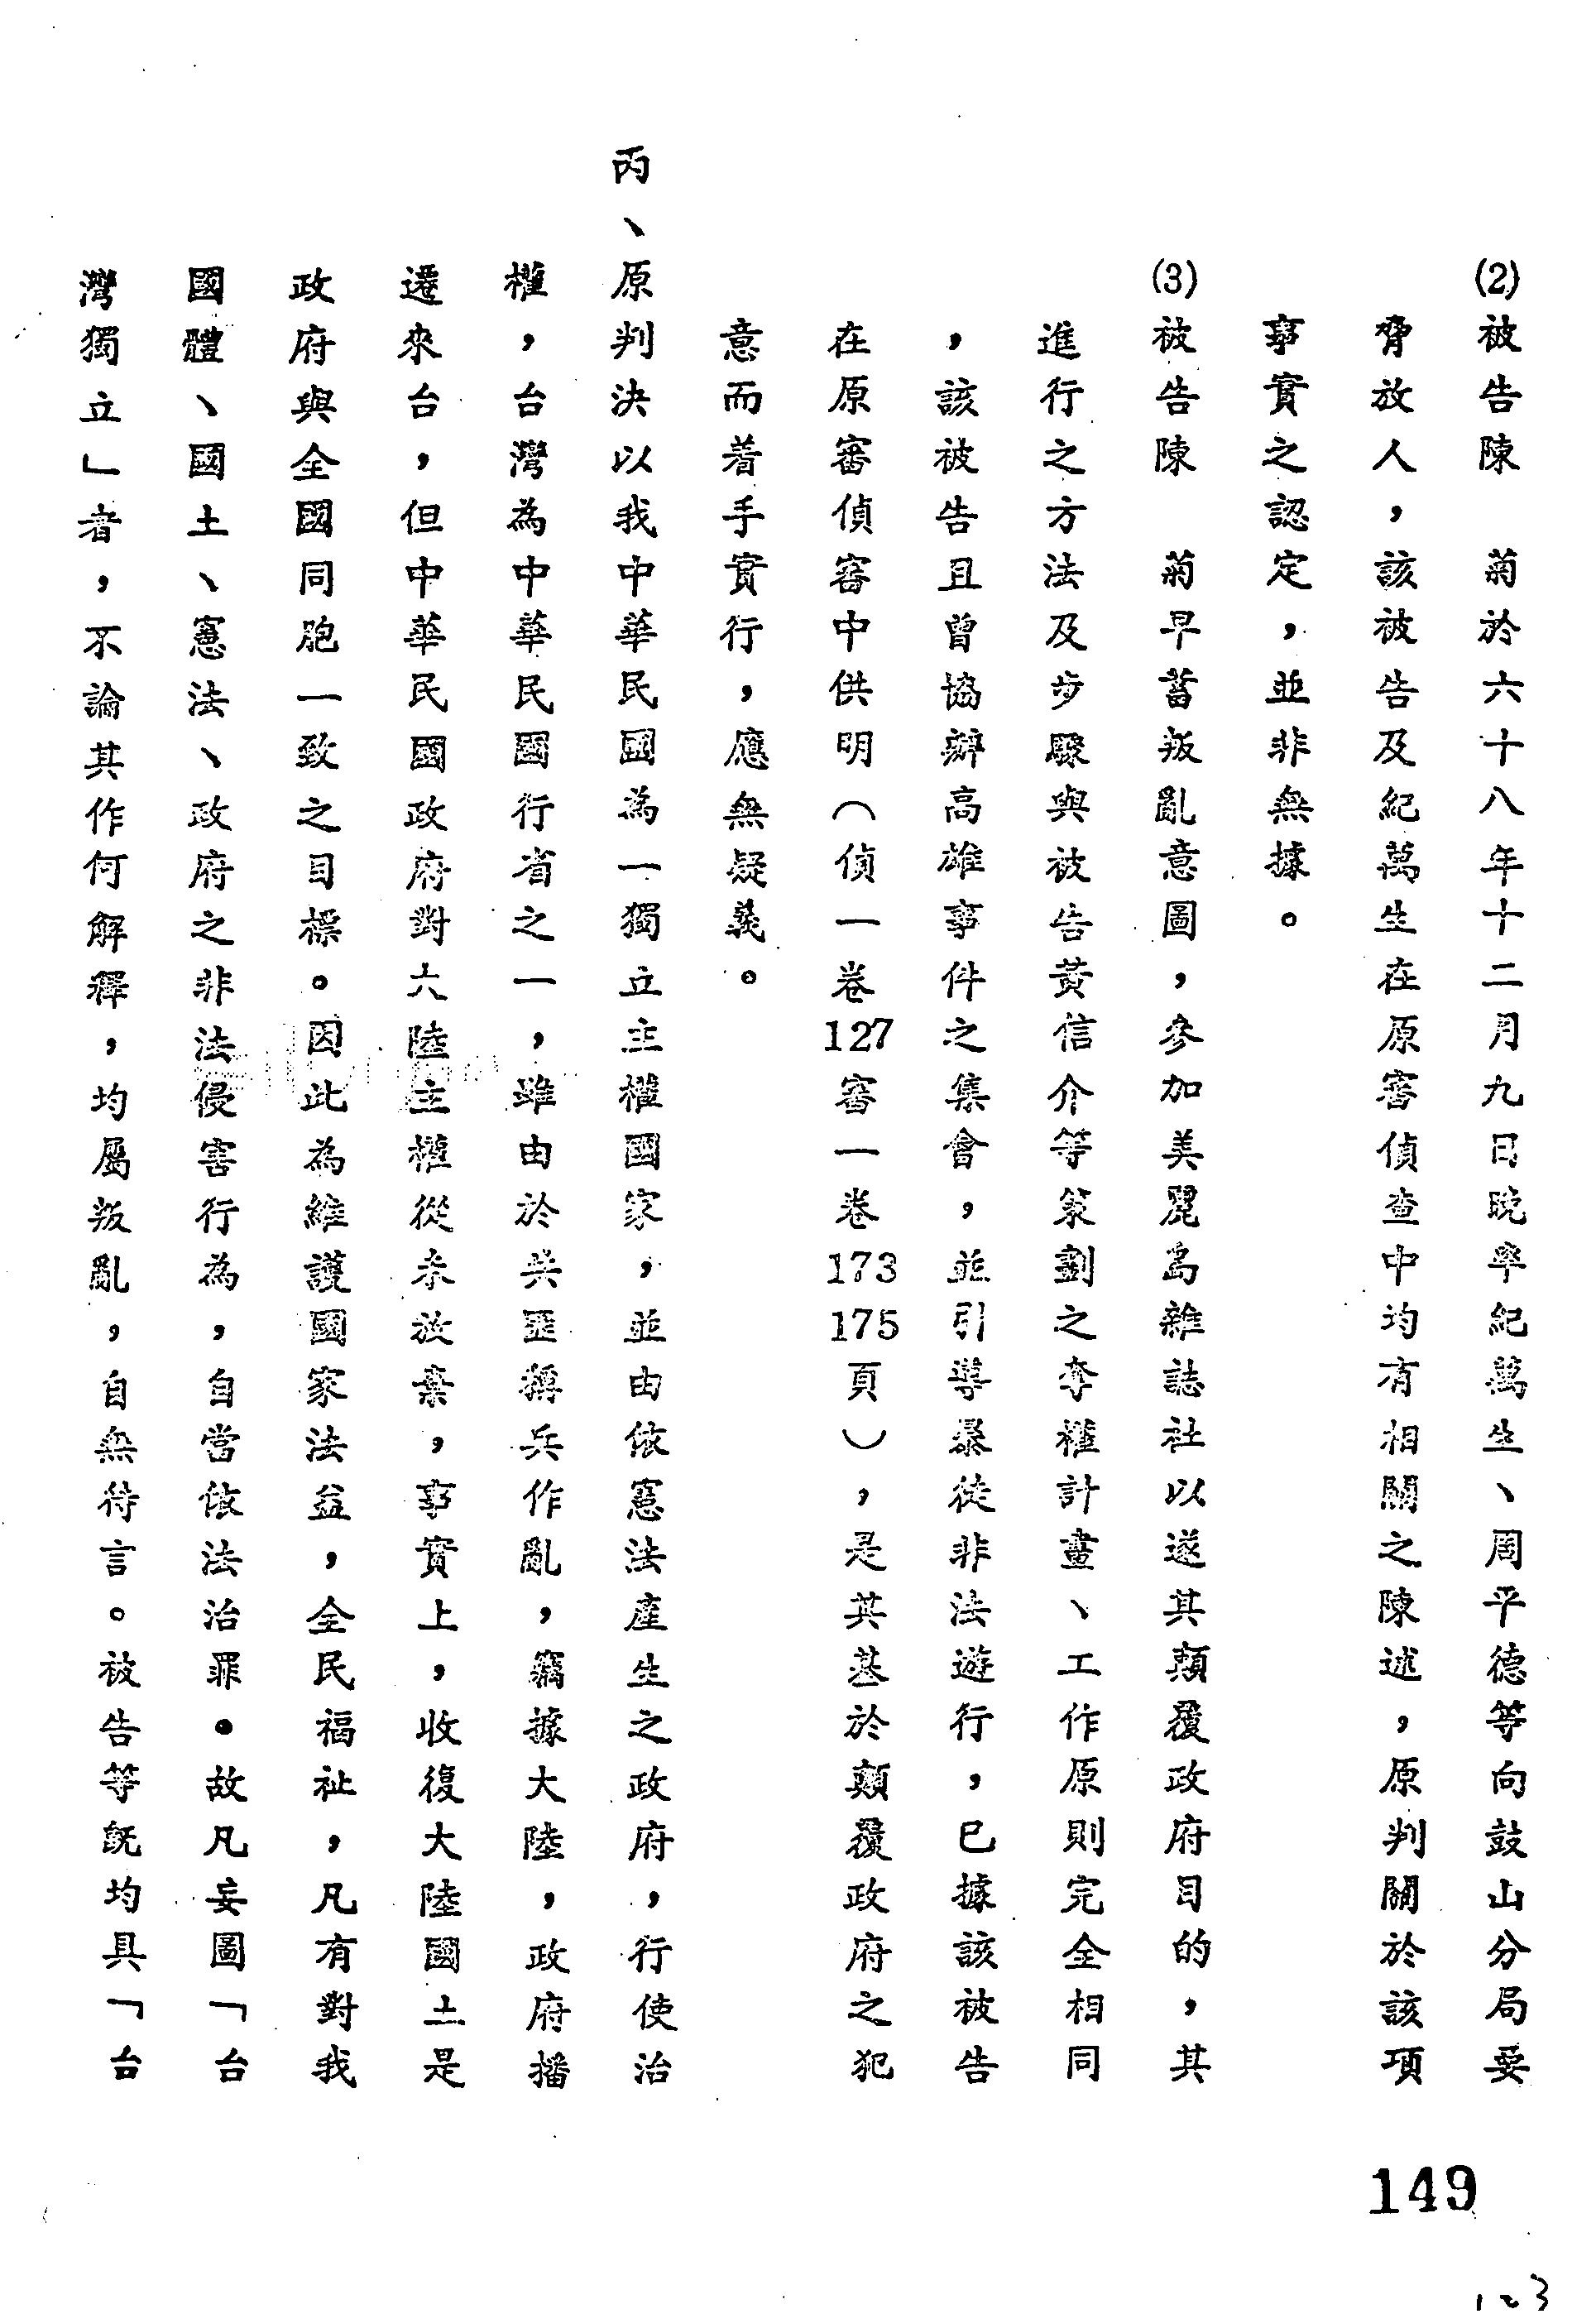 (2)被告陳　菊於六十八年十二月九日晚率紀萬生、周平德等向鼓山分局要
脅放人，該被告及紀萬生在原審偵查中均有相關之陳述，原判關於該項
事實之認定，並非無據。
(3)被告陳　菊早蓄叛亂意圖，參加美麗島雜誌社以遂其顛覆政府目的，其
進行之方法及步驟與被告黃信介等策劃之奪權計畫、工作原則完全相同
，該被告且曾協辦高雄事件之集會，並引導暴徒非法遊行，已據該被告
在原審偵審中供明（偵一卷127審一卷173 175頁），是其基於顛覆政府之犯
意而着手實行，應無疑義。
丙、原判決以我中華民國為一獨立主權國家，並由依憲法產生之政府，行使治
權，台灣為中華民國行省之一，雖由於共匪稱兵作亂，竊據大陸，政府播
遷來台，但中華民國政府對大陸主權從未放棄，事實上，收復大陸國土是
政府與全國同胞一致之目標。因此為維護國家法益，全民福祉，凡有對我
國體、國土、憲法、政府之非法侵害行為，自當依法治罪。故凡妄圖「台
灣獨立」者，不論其作何解釋，均屬叛亂，自無待言。被告等既均具「台
149
123